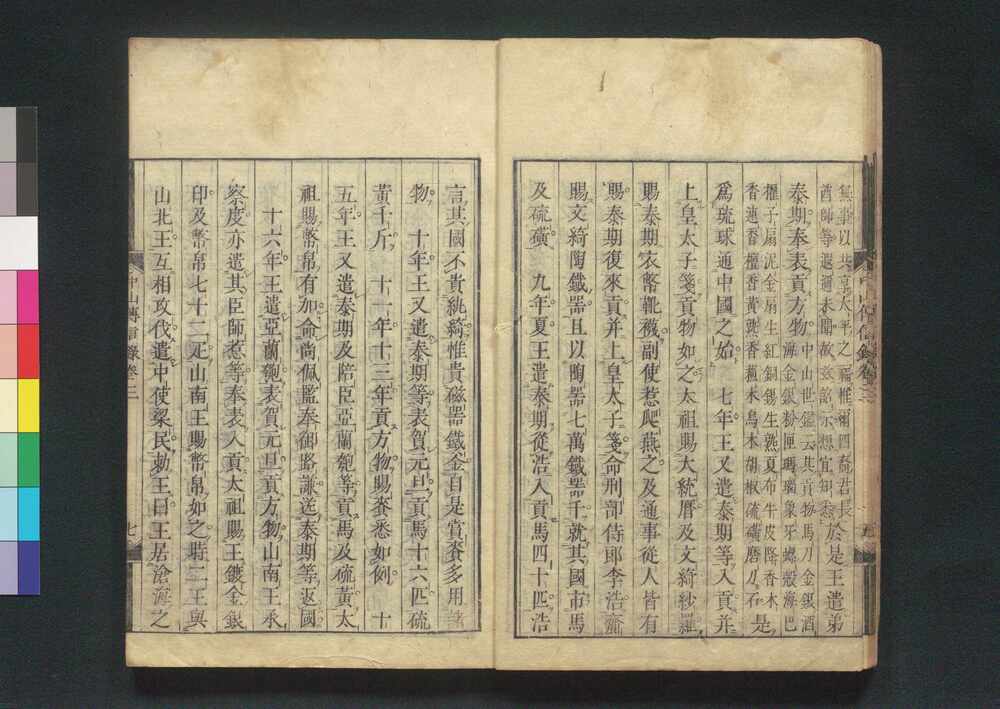 無事以共享太平之福惟爾四裔君長
酋帥等遐遠未聞故玆詔示想宜知悉
於是王遣弟
泰期奉表貢方物
中山世鑑云其貢物馬刀金銀酒
海金銀粉匣瑪瑙象牙螺殻海巴
擢子扇泥金扇生紅銅錫生熟夏布牛皮降香木
香速香檀香黃熟香蘓木烏木胡椒硫磺磨刀石
是
爲琉球通中國之始 七年王又遣泰期等入貢并
上皇太子箋貢物如之太祖賜大統曆及文綺紗羅
賜泰期衣幣靴襪副使惹爬燕之及通事從人皆有
賜泰期復來貢并上皇太子箋命刑部侍郎李浩齎
賜文綺陶鐵器且以陶器七萬鐵器千就其國市馬
及硫磺 九年夏王遣泰期從浩入貢馬四十匹浩
言其國不貴紈綺惟貴磁器鐵釜自是賞賚多用諸
物 十年王又遣泰期等表賀元旦貢馬十六匹硫
黃千斤 十一年十三年貢方物賜賚悉如例 十
五年王又遣泰期及陪臣亞蘭匏等貢馬及硫黃太
祖賜幣帛有加命尚佩監奉御路謙送泰期等返國
十六年王遣亞蘭匏表賀元旦貢方物山南王承
察度亦遣其臣師惹等奉表入貢太祖賜王鍍金銀
印及幣帛七十二疋山南王賜幣帛如之時二王與
山北王互相攻伐遣中使梁民勅王曰王居滄海之
中山傳信錄卷三
七